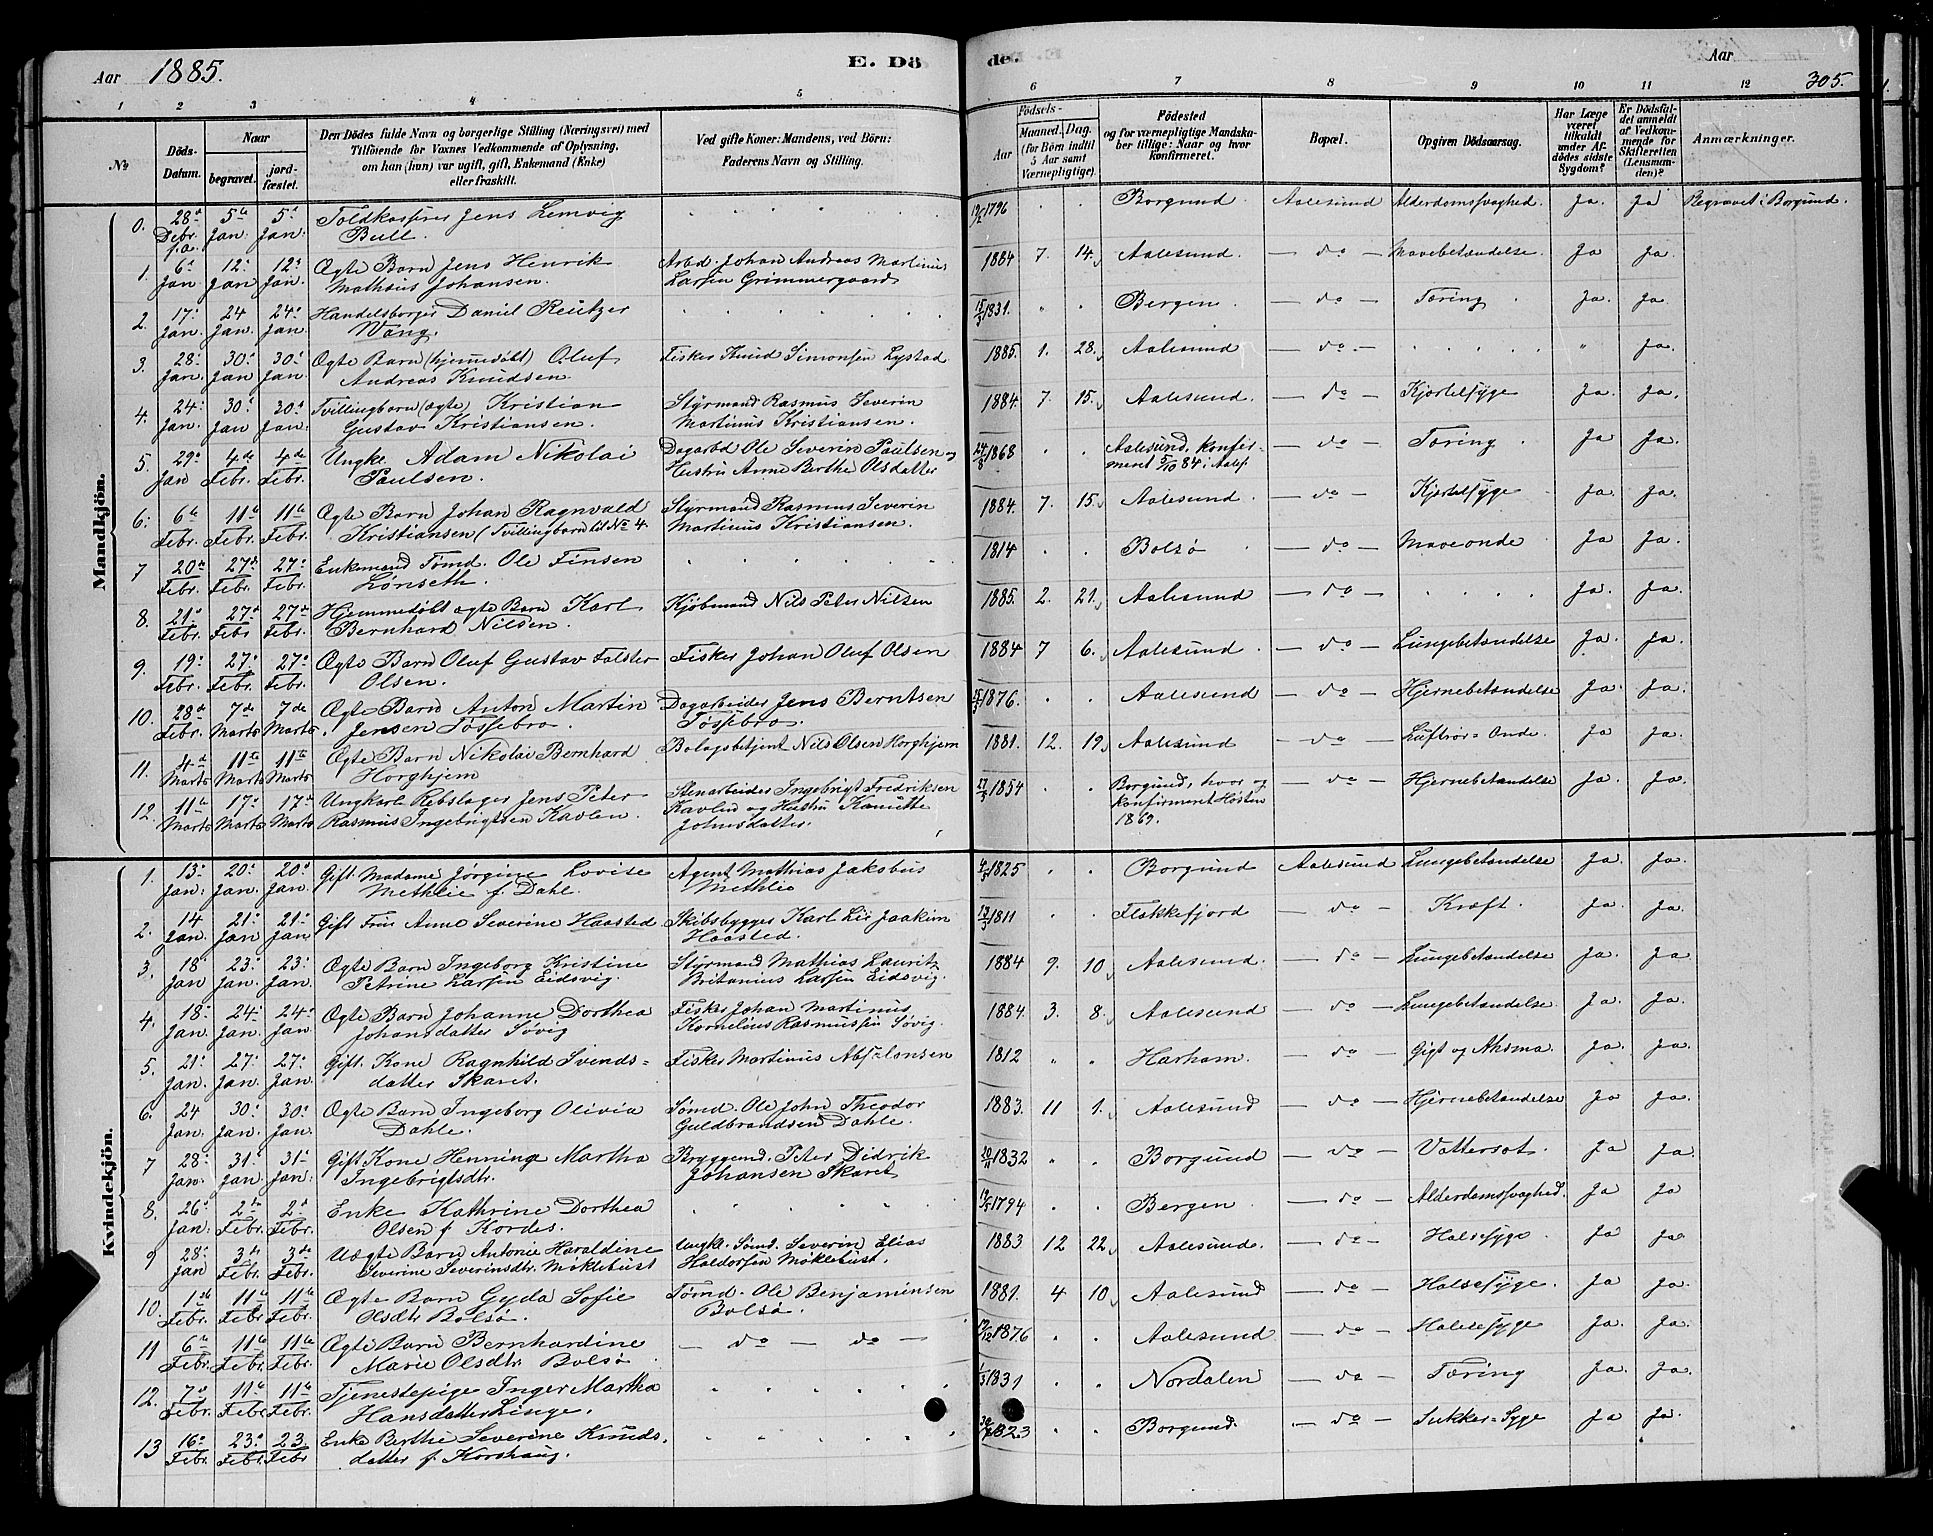 Aar 1885. E. Dö de. Aar 305.
1 2 3 4 5 6 7 8 9 10 11 12
№ Döds-Datum. Naar begravet. jord-fæstet. Den Dödes fulde Navn og borgerlige Stilling (Næringsvei) med Tilföiende for Voxnes Vedkommende af Oplysning, om han (hun) var ugift, gift, Enkemand (Enke) eller fraskilt. Ved gifte Koner: Mandens, ved Börn: Faderens Navn og Stilling. Födsels- Aar Maaned. Dag. (for Börn indtil 5 Aar samt Værnepligtige). Födested og for værnepligtige Mandskaber tillige: Naar og hvor konfirmeret. Bopæl. Opgiven Dödsaarsag. Har Læge været tilkaldt under Afdödes sidste Sygdom? Er Dödsfaldet anmeldt af Vedkommende for Skifteretten (Lensmanden)? Anmærkninger.
Mandkjön.
0. 28de Debr. f.a. 5te Jan. 5te Jan. Toldkasserer Jens Lemvig Bull. 1796 Borgund Aalesund Alderdomssvaghed. Ja. Ja Begravet i Borgund.
1. 6te Jan 12te Jan 12te Jan. Ægte Barn Jens Henrik Mathæus Johansen. Arbd. Johan Andreas Martinus Larsen Grimmergaard 1884 7. 14. Aalesund. — do — Mavebetændelse. Ja Ja.
2. 17. Jan. 24 Jan. 24. Jan. Handelsborger Daniel Reutzer Wang. 15/3 1831. Bergen. — do — Tæring Ja. Ja.
3. 28. Jan. 30. Jan 30. Jan. Ægte Barn (hjemmedöbt) Oluf Andreas Knudsen. Fisker Knud Simonsen Lystad 1885. 1. 28. Aalesund — do — " Ja.
4. 24. Jan. 30. Jan 30. Jan. Tvillingbarn (ægte) Kristian Gustav Kristiansen. Styrmand Rasmus Severin Martinus Kristiansen. 1884. 7. 15. Aalesund. — do — Kjertelsyge Ja. Ja.
5. 29. Jan 4de Febr. 4de Febr. Ungke. Adam Nikolai Paulsen. Dagarbd Ole Severin Paulsen og Hustru Anne Berthe Olsdatter 24/8 1868 Aalesund, konfirmeret 5/10 84 i Aales. — do — Tæring Ja Ja.
6. 6te Febr. 11te Febr. 11te Febr. Ægte Barn Johan Ragnvald Kristiansen (Tvillingbarn til No 4. Styrmand Rasmus Severin Martinus Kristiansen. 1884. 7. 15. Aalesund — do — Kjertelsyge Ja. Ja.
7 20de Febr. 27de Febr. 27. Febr. Enkemand Tømd. Ole Finsen Lønseth. 1814 Bolsø — do — Maveonde Ja Ja.
8. 21de Febr. 27de Febr 27de Febr. Hjemmedöbt ægte Barn Karl Bernhard Nilsen. Kjöbmand Nils Peter Nilsen 1885. 2. 21. Aalesund — do — Ja. Ja.
9. 19. Febr. 27. Febr. 27. Febr. Ægte Barn Oluf Gustav Falster Olsen. Fisker Johan Oluf Olsen 1884 7 6. Aalesund — do — Lungebetændelse Ja. Ja.
10. 28de Febr. 7de Marts 7de Marts. Ægte Barn Anton Martin Jensen Tøssebro. Dagarbeider Jens Berntsen Tøssebro. 1876. Aalesund — do — Hjernebetændelse Ja. Ja.
11. 4de Marts 11te Marts 11te Marts Ægte Barn Nikolai Bernhard Horghjem Bolagsbetjent Nils Olsen Horghjem 1881. 12. 19. Aalesund — do — Luftrör-Onde. Ja Ja.
12. 11te Marts 17. Marts 17de Marts Ungkarl Rebslager Jens Peter Rasmus Ingebrigtsen Kavlen. Stenarbeider Ingebrigt Fredriksen Kavlen og Hustru Johnsdatter. 1854 Borgund, hvor og konfirmeret Høsten 1869. — do — Hjernebetændelse Ja. Ja.
Kvindekjön.
1. 13. Jan. 20. Jan. 20de Jan. Gift Madame Jørgine Lovise Methlie f. Dahl. Agent Mathias Jakobus Methlie 1825 Borgund Aalesund Lungebetændelse Ja. Ja.
2. 14 Jan. 21. Jan 21. Jan Gift Frue Anne Severine Haasted. Skibsbygger Karl Lie Joakim Haasted. 1811 Flekkefjord — do — Kræft. Ja. Ja.
3. 18. Jan 23. Jan. 23. Jan. Ægte Barn Ingeborg Kristine Petrine Larsen Eidsvig. Styrmand Mathias Lauritz Britanius Larsen Eidsvig. 1884 9. 10 Aalesund. — do — Lungebetændelse Ja. Ja
4. 18. Jan. 24. Jan. 24. Jan Ægte Barn Johanne Dorthea Johansdatter Søvig Fisker Johan Martinus Kornelius Rasmussen Søvig. 1884. 3. 8. Aalesund — do — Lungebetændelse. Ja. Ja.
5. 21. Jan. 27. Jan. 27. Jan. Gift. Kone Ragnhild Svendsdatter Skaret. Fisker Martinus Absalonsen 1812 Harham. — do — Gigt og Aksma. Ja. Ja.
6. 24 Jan. 30. Jan. 30. Jan. Ægte Barn Ingeborg Olivia Dahle. Sømd. Ole John Theodor Guldbrandsen Dahle. 1883. 11 1. Aalesund — do — Hjernebetændelse Ja Ja.
7 28. Jan. 31. Jan 31. Jan. Gift Kone Henninge Martha Ingebrigtsdtr. Bryggemd. Peter Didrik Johansen Skaret 1832 Borgund — do — Vattersot. Ja Ja.
8. 26de Jan. 2den Febr. 2den Febr. Enke Kathrine Dorthea Olsen f. Kordes. 1794 Bergen — do — Alderdomssvaghed. Ja Ja
9 28. Jan 3die Febr. 3die Febr. Uægte Barn Antonie Haraldine Severine Severinsdtr. Møklebust Ungk. Sømd. Severin Elias Haldorsen Møklebust. 1883 12 22. Aalesund. — do — Halssyge Ja Ja
10. 1ste Febr. 11te Febr 11te Febr. Ægte Barn Gyda Sofie Olsdtr Bolsø. Tømd. Ole Benjaminsen Bolsø. 1881. 4 10. Aalesund — do — Halssyge. Ja Ja.
11 6te Febr. 11te Febr. 11te Febr. Ægte Barn Bernhardine Marie Olsdtr Bolsø — do — do — 1876 Aalesund — do — Halssyge Ja. Ja.
12. 7de Febr. 11te Febr 11te Febr. Tjenestepige Inger Martha Hansdatter Linge. 1831 Nordalen — do — Tæring Ja. Ja.
13 16. Febr. 23. Febr. 23 Febr Enke Berthe Severine Knudsdatter f. Korshaug. 1823 Borgund — do — Sukker-Syge Ja Ja.